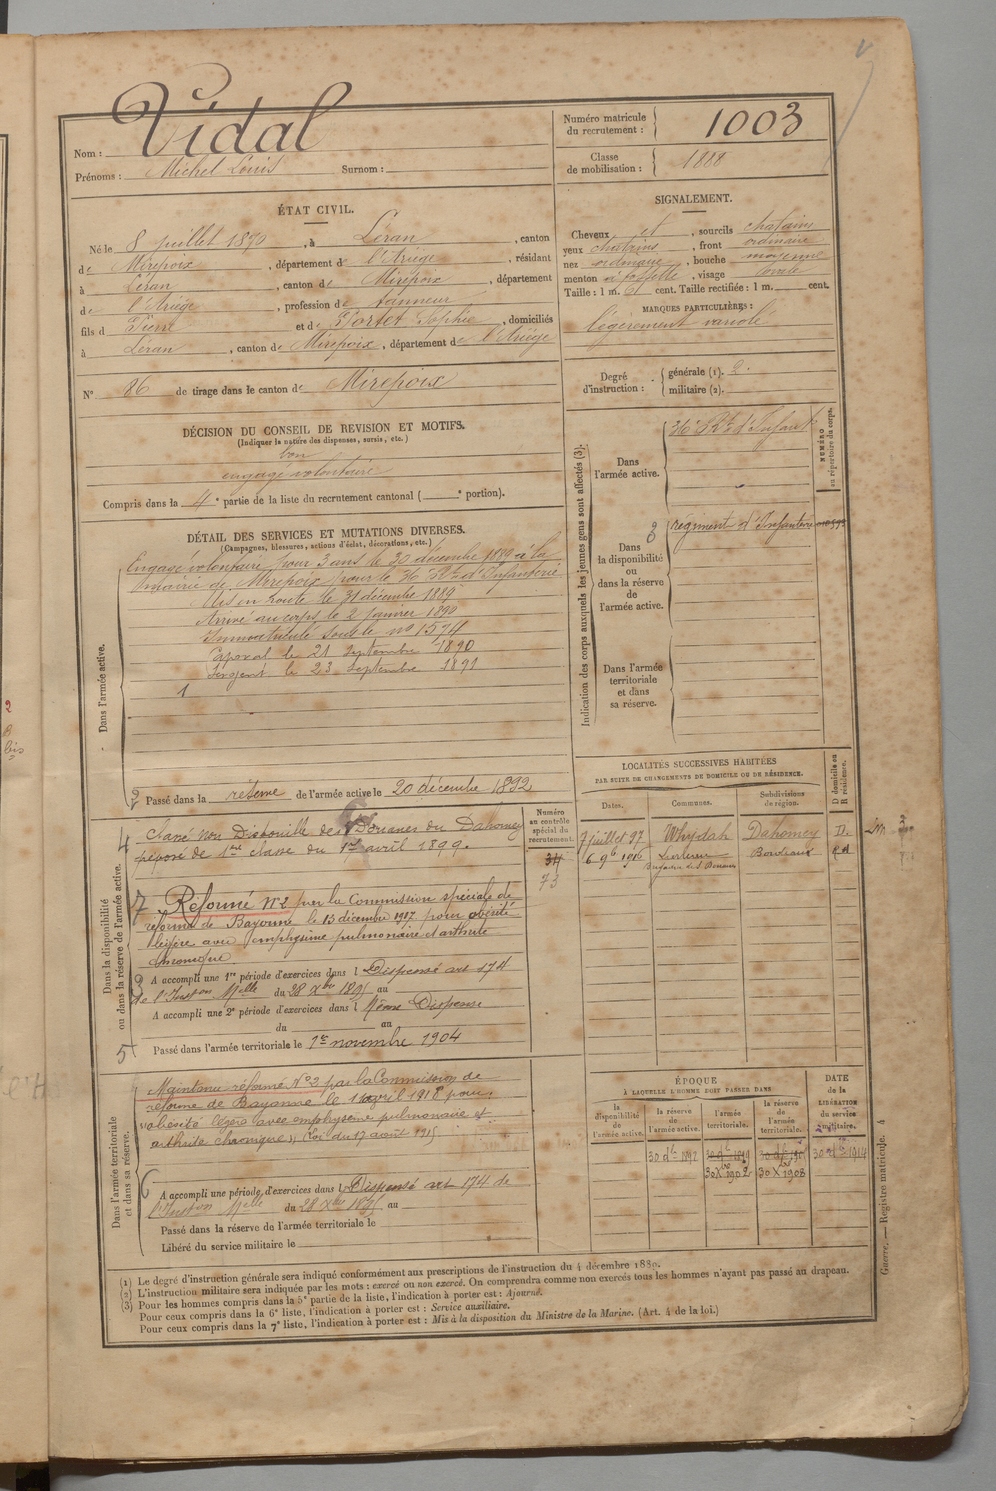 Vidal
Nom :
Prénoms : Michel Louis Surnom :
Numéro matricule du recrutement : 1003
Classe de mobilisation : 1888
ÉTAT CIVIL.
Né le 8 juillet 1870, à Léran, canton
de Mirepoix, département de l'Ariège, résidant
à Léran, canton de Mirepoix, département
de l'Ariège, profession de tanneur
fils de Pierre et de Portet Sophie, domiciliés
à Léran, canton de Mirepoix, département de l'Ariège
N° 86 de tirage dans le canton de Mirepoix
SIGNALEMENT.
Cheveux et, sourcils chatains
yeux chatains, front ordinaire
nez ordinaire, bouche moyenne
menton à fossette, visage ovale
Taille : 1 m. 61 cent. Taille rectifiée : 1 m. cent.
MARQUES PARTICULIÈRES :
légèrement variolé
Degré d'instruction : générale (1). 2.
militaire (2).
DÉCISION DU CONSEIL DE REVISION ET MOTIFS.
(Indiquer la nature des dispenses, sursis, etc.)
bon
engagé volontaire
Compris dans la 4e partie de la liste du recrutement cantonal ( e portion).
DÉTAIL DES SERVICES ET MUTATIONS DIVERSES.
(Campagnes, blessures, actions d'éclat, décorations, etc.)
Dans l'armée active.
Engagé volontaire pour 3 ans le 30 décembre 1889 à la
mairie de Mirepoix pour le 36 Rt d'Infanterie
Mis en route le 31 décembre 1889
Arrivé au corps le 2 janvier 1890
Immatriculé sous le no 1574
Caporal le 21 Septembre 1890
Sergent le 23 Septembre 1891
1
2 Passé dans la réserve de l'armée active le 20 décembre 1892
Indication des corps auxquels les jeunes gens sont affectés (3).
NUMÉRO au répertoire du corps.
Dans l'armée active.
36e Rt d'Infant
Dans la disponibilité ou dans la réserve de l'armée active.
3
régiment d'Infanterie
Dans l'armée territoriale et dans sa réserve.
LOCALITÉS SUCCESSIVES HABITÉES
PAR SUITE DE CHANGEMENTS DE DOMICILE OU DE RÉSIDENCE.
Dates. Communes. Subdivisions de région. D domicile ou R résidence.
7 juillet 97 Whydah Dahomey D.
6 9b 1916 Bordeaux
Dans la disponibilité ou dans la réserve de l'armée active.
Numéro au contrôle spécial du recrutement.
34
73
4 Classé non Disponible des Douanes du Dahomey
préposé de 1re classe du 1er avril 1899.
7 Réformé N°2 par la Commission spéciale de
réforme de Bayonne le 13 décembre 1917 pour obésité
légère avec emphysème pulmonaire et arthrite
chronique
3 A accompli une 1re période d'exercices dans l Dispensé art 174
de l'Inston Melle du 28 Xbre 1895 au
A accompli une 2e période d'exercices dans l Même Dispense
du au
5 Passé dans l'armée territoriale le 1er novembre 1904
Dans l'armée territoriale et dans sa réserve.
Maintenu réformé N°2 par la Commission de
réforme de Bayonne le 11 avril 1918 pour
obésité légère avec emphysème pulmonaire et
arthrite chronique, Loi du 17 août 1915
6 A accompli une période d'exercices dans l Dispensé art 174 de
l'Inston Melle du 28 Xbre 1895 au
Passé dans la réserve de l'armée territoriale le
Libéré du service militaire le
ÉPOQUE
À LAQUELLE L'HOMME DOIT PASSER DANS
la disponibilité de l'armée active. la réserve de l'armée active. l'armée territoriale. la réserve de l'armée territoriale.
DATE de la LIBÉRATION du service militaire.
30 dbre 1892
30 Xbre 1902 30 Xbre 1908
30 dbre 1914
(1) Le degré d'instruction générale sera indiqué conformément aux prescriptions de l'instruction du 4 décembre 1889.
(2) L'instruction militaire sera indiquée par les mots : exercé ou non exercé. On comprendra comme non exercés tous les hommes n'ayant pas passé au drapeau.
(3) Pour les hommes compris dans la 5e partie de la liste, l'indication à porter est : Ajourné.
Pour ceux compris dans la 6e liste, l'indication à porter est : Service auxiliaire.
Pour ceux compris dans la 7e liste, l'indication à porter est : Mis à la disposition du Ministre de la Marine. (Art. 4 de la loi.)
Guerre. — Registre matricule. 4